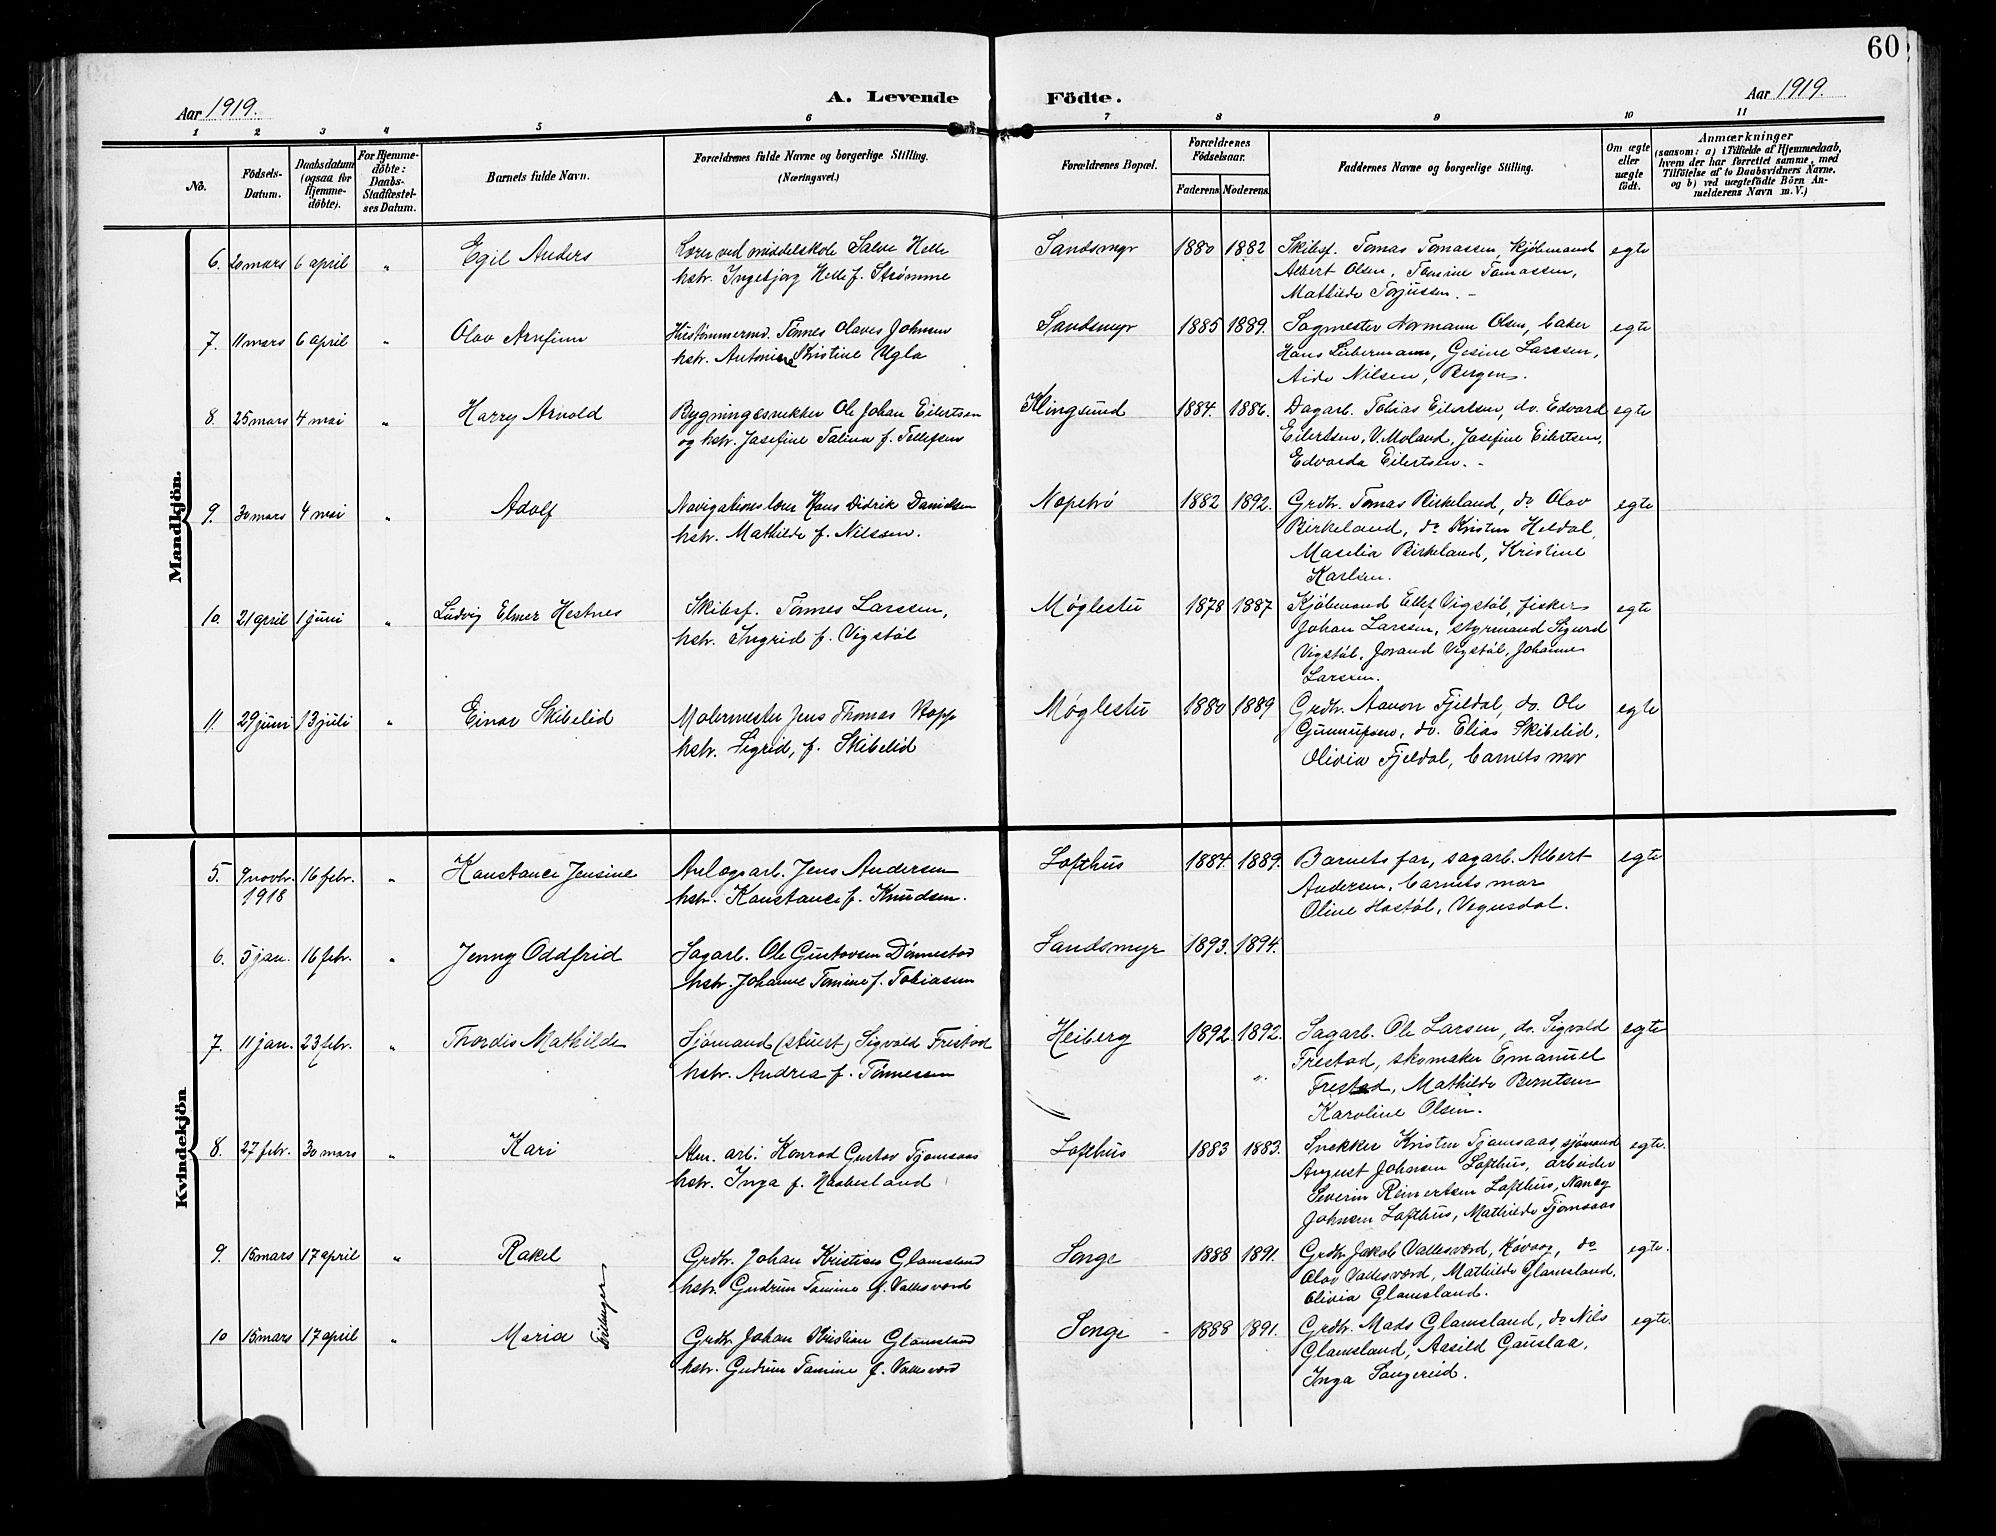 60
Aar 1919.
A. Levende
Födte.
Aar 1919.
1 2 3 4 5 6 7 8 9 10 11
No.
Födsels-
Datum.
Daabsdatum
(ogsaa for
Hjemme-
döbte).
For Hjemme-
döbte:
Daabs-
Stadfæstel-
ses Datum.
Barnets fulde Navn.
Forældrenes fulde Navne og borgerlige Stilling.
(Næringsvei.)
Forældrenes Bopæl.
Forældrenes
Födselsaar.
Faderens. Moderens.
Faddernes Navne og borgerlige Stilling.
Om ægte
eller
uægte
födt.
Anmærkninger
(saasom: a) i Tilfælde af Hjemmedaab,
hvem der har forrettet samme, med
Tilföielse af to Daabsvidners Navne.
og b) ved uægtefödte Börn An-
melderens Navn m. V.)
Mandkjön.
6. 20 mars 6 april " Egil Anders Lærer ved middelskole Salve Helle Sandsmyr 1880 1882 Skibsf. Tomas Tomassen, kjöbmand egte
hstr. Ingebjørg Helle f. Strømme Albert Olsen, Tomine Tomassen,
Mathilde Torjussen. -
7. 11 mars 6 april " Olav Arnfinn Hustømmermd. Tönnes Olaves Johnsen Sandsmyr 1885 1889. Sagmester Normann Olsen, baker egte
hstr. Antonine Kristine Ugla Hans Liebermann, Gesine Larssen,
Aida Nilsen, Bergen.
8. 25 mars 4 mai " Harry Arnold Bygningssnekker Ole Johan Eilertsen Klingsund 1884. 1886. Dagarb. Tobias Eilertsen, do. Edvard egte
og hstr. Josefine Talina f. Tellefsen Eilertsen, V. Moland, Josefine Eilertsen,
Edvarda Eilertsen. -
9. 30 mars 4 mai " Adolf Navigationslærer Hans Didrik Danielsen Nopetrö 1882 1892. Grdbr. Tomas Birkeland, do Olav egte
hstr. Mathilde f. Nilssen. Birkeland, do Kristen Heldal,
Maselia Birkeland, Kristine
Karlsen.
10. 21 april 1 juni " Ludvig Elmer Hestnes Skibsf. Tönnes Larssen, Møglestu 1878 1887 Kjöbmand Ellef Vigstöl, fisker egte
hstr. Ingrid f. Vigstöl Johan Larssen, styrmand Sigurd
Vigstöl, Jorand Vigstöl, Johanne
Larssen.
11. 29 juni 13 juli " Einar Skibelid Malermester Jens Thomas Kopp Møglestu 1880 1889 Grdbr. Aanon Fjeldal, do. Ole egte
hstr. Sigrid, f. Skibelid Gunnufsen, do. Elias Skibelid,
Olivia Fjeldal, barnets mor
Kvindekjön
5. 9 novbr. 16 febr. " Konstance Jensine Anlægsarb. Jens Andersen Lofthus 1884. 1889. Barnets far, sagarb. Albert egte
1918 hstr. Konstance f. Knudsen. Andersen, barnets mor
Oline Hostöl, Vegusdal.
6. 5 jan. 16 febr. " Jenny Oddfrid Sagarb. Ole Gustavsen Dönnestad Sandsmyr 1893. 1894.
hstr. Johanne Tomine f. Tobiassen
7. 11 jan. 23 febr. " Thordis Mathilde Sjömand (stuert) Sigvald Frestad Heiberg 1892. 1892. Sagarb. Ole Larsen, do. Sigvald egte
hstr. Andrea f. Tönnessen Frestad, skomaker Emanuel
Frestad, Mathilde Berntsen
Karoline Olsen.
8. 27 febr. 30 mars " Kari Alm. arb. Konrad Gustav Tjomsaas Lofthus 1883 1883. Snekker Kristen Tjomsaas, sjömand egte.
hstr. Inga f. Haabesland August Johnsen Lofthus, arbeider
Severin Reinertsen Lofthus, Nancy
Johnsen Lofthus, Mathilde Tjomsaas
9. 15 mars 17 april " Rakel Grdbr. Johan Kristian Glamsland Songe 1888 1891. Grdbr. Jakob Vallesværd, Høvaag, do egte.
hstr. Gudrun Tomine f. Vallesværd Olav Vallesværd, Mathilde Glamsland,
Olivia Glamsland.
Tvillinger
10 15 mars 17 april " Maria Grdbr. Johan Kristian Glamsland Songe 1888 1891. Grdbr. Mads Glamsland, do Nils egte.
hstr. Gudrun Tomine f. Vallesværd Glamsland, Aasild Gauslaa,
Inga Sangereid.